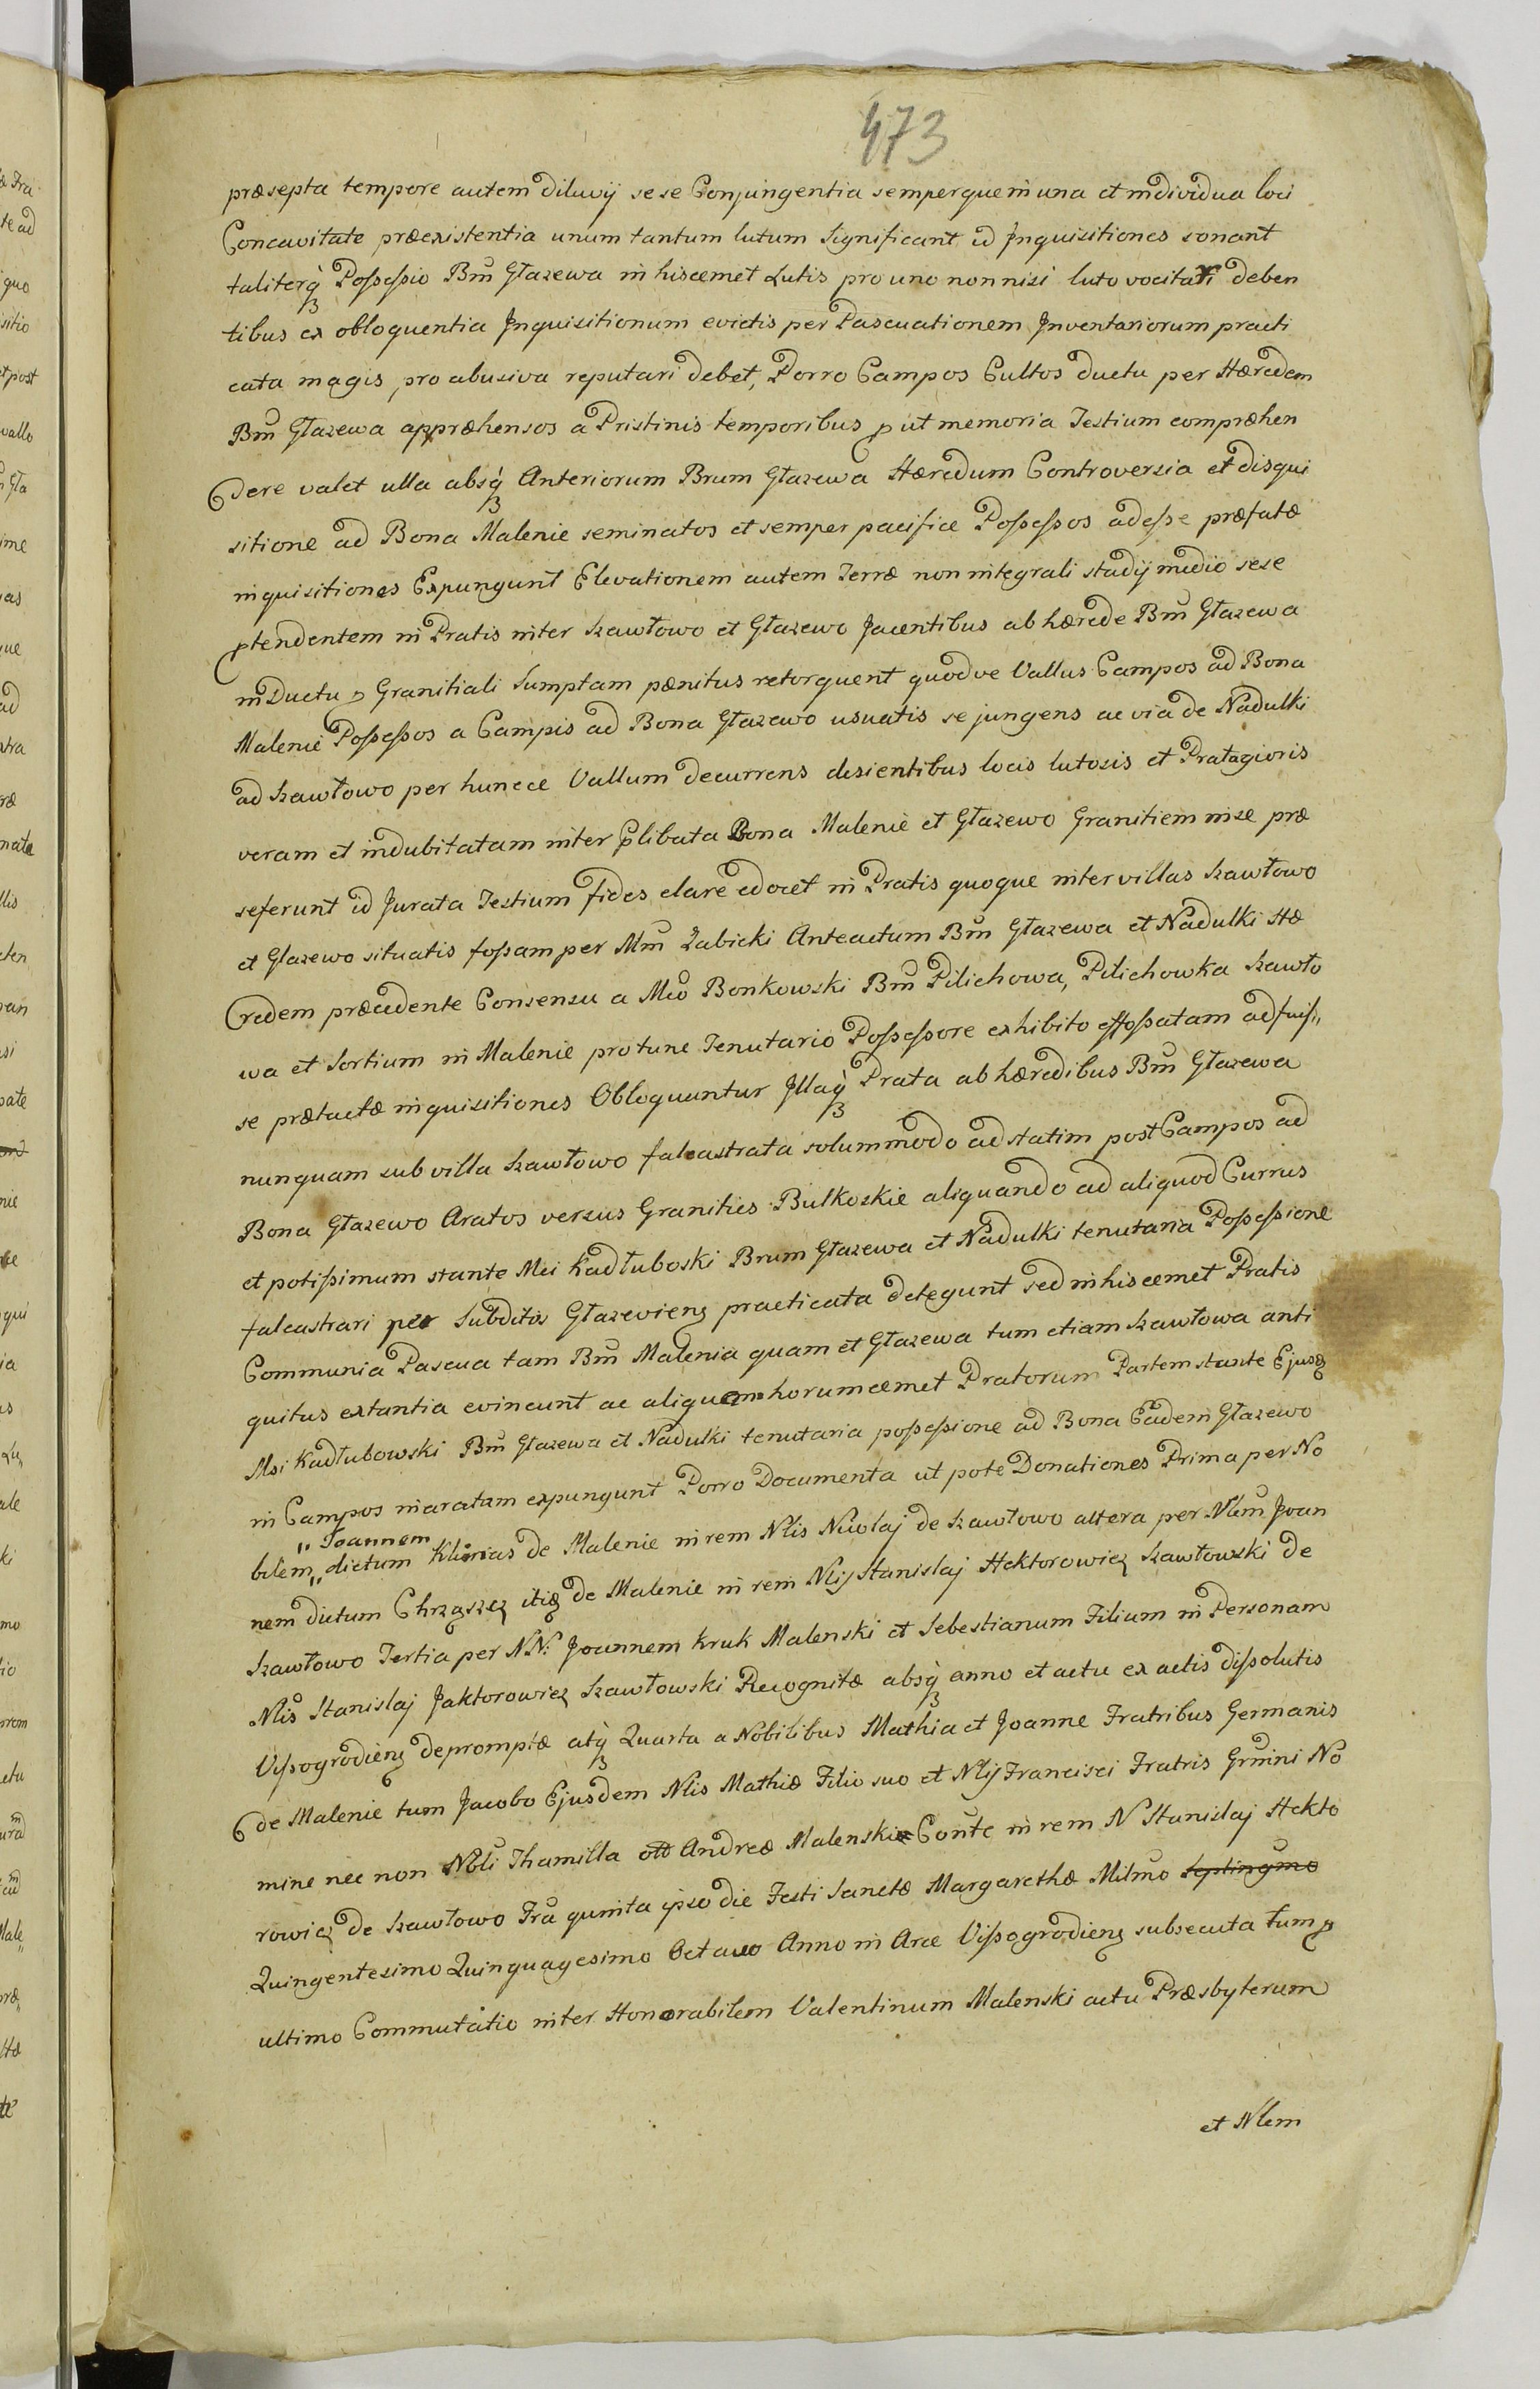 473
præsepta tempore autem diluvij sese Conjungentia semperque in una et individua loci
Concavitate præexistentia unum tantum lutum significant id Inquisitiones sonant
taliterq Possessio Bm Głazewa in hiscemet Lutis pro uno nonnisi luto vocitari deben
tibus ex obloquentia Inquisitionum evictis per Pascuationem Inventariorum practi
cata magis pro abusiva reputari debet, Porro Campos Cultos ductu per Hæredem
Bm Głazewa appræhensos a Pristinis temporibus put memoria Testium compræhen
dere valet ulla absq Anteriorum Brum Głazewa Hæredum Controversia et disqui
sitione ad Bona Malenie seminatos et semper pacifice Possessos adesse præfatæ
inquisitiones Expungunt Elevationem autem Terræ non integrali stadij medio sese
ptendentem in Pratis inter Szawłowo et Głazewo Jacentibus ab hærede Bm Głazewa
in Ductu Granitiali Sumptam pænitus retorquent quodve Vallus Campos ad Bona
Malenie Possessos a Campis ad Bona Głazewo usuatis sejungens ac via de Nadulki
ad Szawłowo per huncce Vallum decurrens desientibus locis lutosis et Pratagioris
veram et indubitatam inter plibata Bona Malenie et Głazewo Granitiem in se præ
seferunt id Jurata Testium fides clare edocet in Pratis quoque inter villas Szawłowo
et Głazewo situatis fossam per Mm Zabicki Anteactum Bm Głazewa et Nadulki Hæ
redem præcedente Consensu a Mco Bonkowski Bm Pilichowa, Pilichowka Szawło
wa et Sortium in Malenie pro tunc Tenutario Possessore exhibito effossatam adfuis„
se prætactæ inquisitiones Obloquuntur Illaq Prata ab hæredibus Bm Głazewa
nunquam sub villa Szawłowo falcastrata solummodo ad statim post Campos ad
Bona Głazewo Aratos versus Granities Bulkoskie aliquando ad aliquod Currus
et potissimum stante Mci Kadłuboski Brum Głazewa et Nadulki tenutaria Possessione
falcastrari per Subditos Głazeviens practicata detegunt sed in hiscemet Pratis
Communia Pascua tam Bm Malenia quam et Głazewa tum etiam Szawłowa anti
quitus extantia evincunt ac aliquam horumcemet Pratorum Partem stante Ejusd
Msi Kadłubowski Bm Głazewa et Nadulki tenutaria possessione ad Bona Eadem Głazewo
in Campos inaratam expungunt Porro Documenta ut pote Donationes Prima per No
„Joannem
bilem„ dictum Kilinas de Malenie in rem Nlis Nicolaj de Szawłowo altera per Nlem Joan
nem dictum Chrząszcz itid de Malenie in rem Nlis Stanislaj Hektorowicz Szawłowski de
Szawłowo Tertia per NN: Joannem Kruk Malenski et Sebestianum Filium in Personam
Nlis Stanislaj Jaktorowicz Szawłowski Recognitæ absq anno et actu ex actis dissolutis
Vissogrodiens depromptæ atq Quarta a Nobilibus Mathia et Joanne Fratribus Germanis
de Malenie tum Jacobo Ejusdem Nlis Mathiæ Filio suo et Nlis Francisci Fratris Grmini No
mine nec non Nbli Thamilla Andreæ Malenski Conte in rem N Stanislaj Hekto
rowicz de Szawłowo Fra quinta ipso die Festi Sanctæ Margarethæ Milmo Septingmo
Quingentesimo Quinquagesimo Octavo Anno in Arce Vissogrodiens subsecuta tum
ultimo Commutatio inter Honorabilem Valentinum Malenski actu Præsbyterum
et Nlem